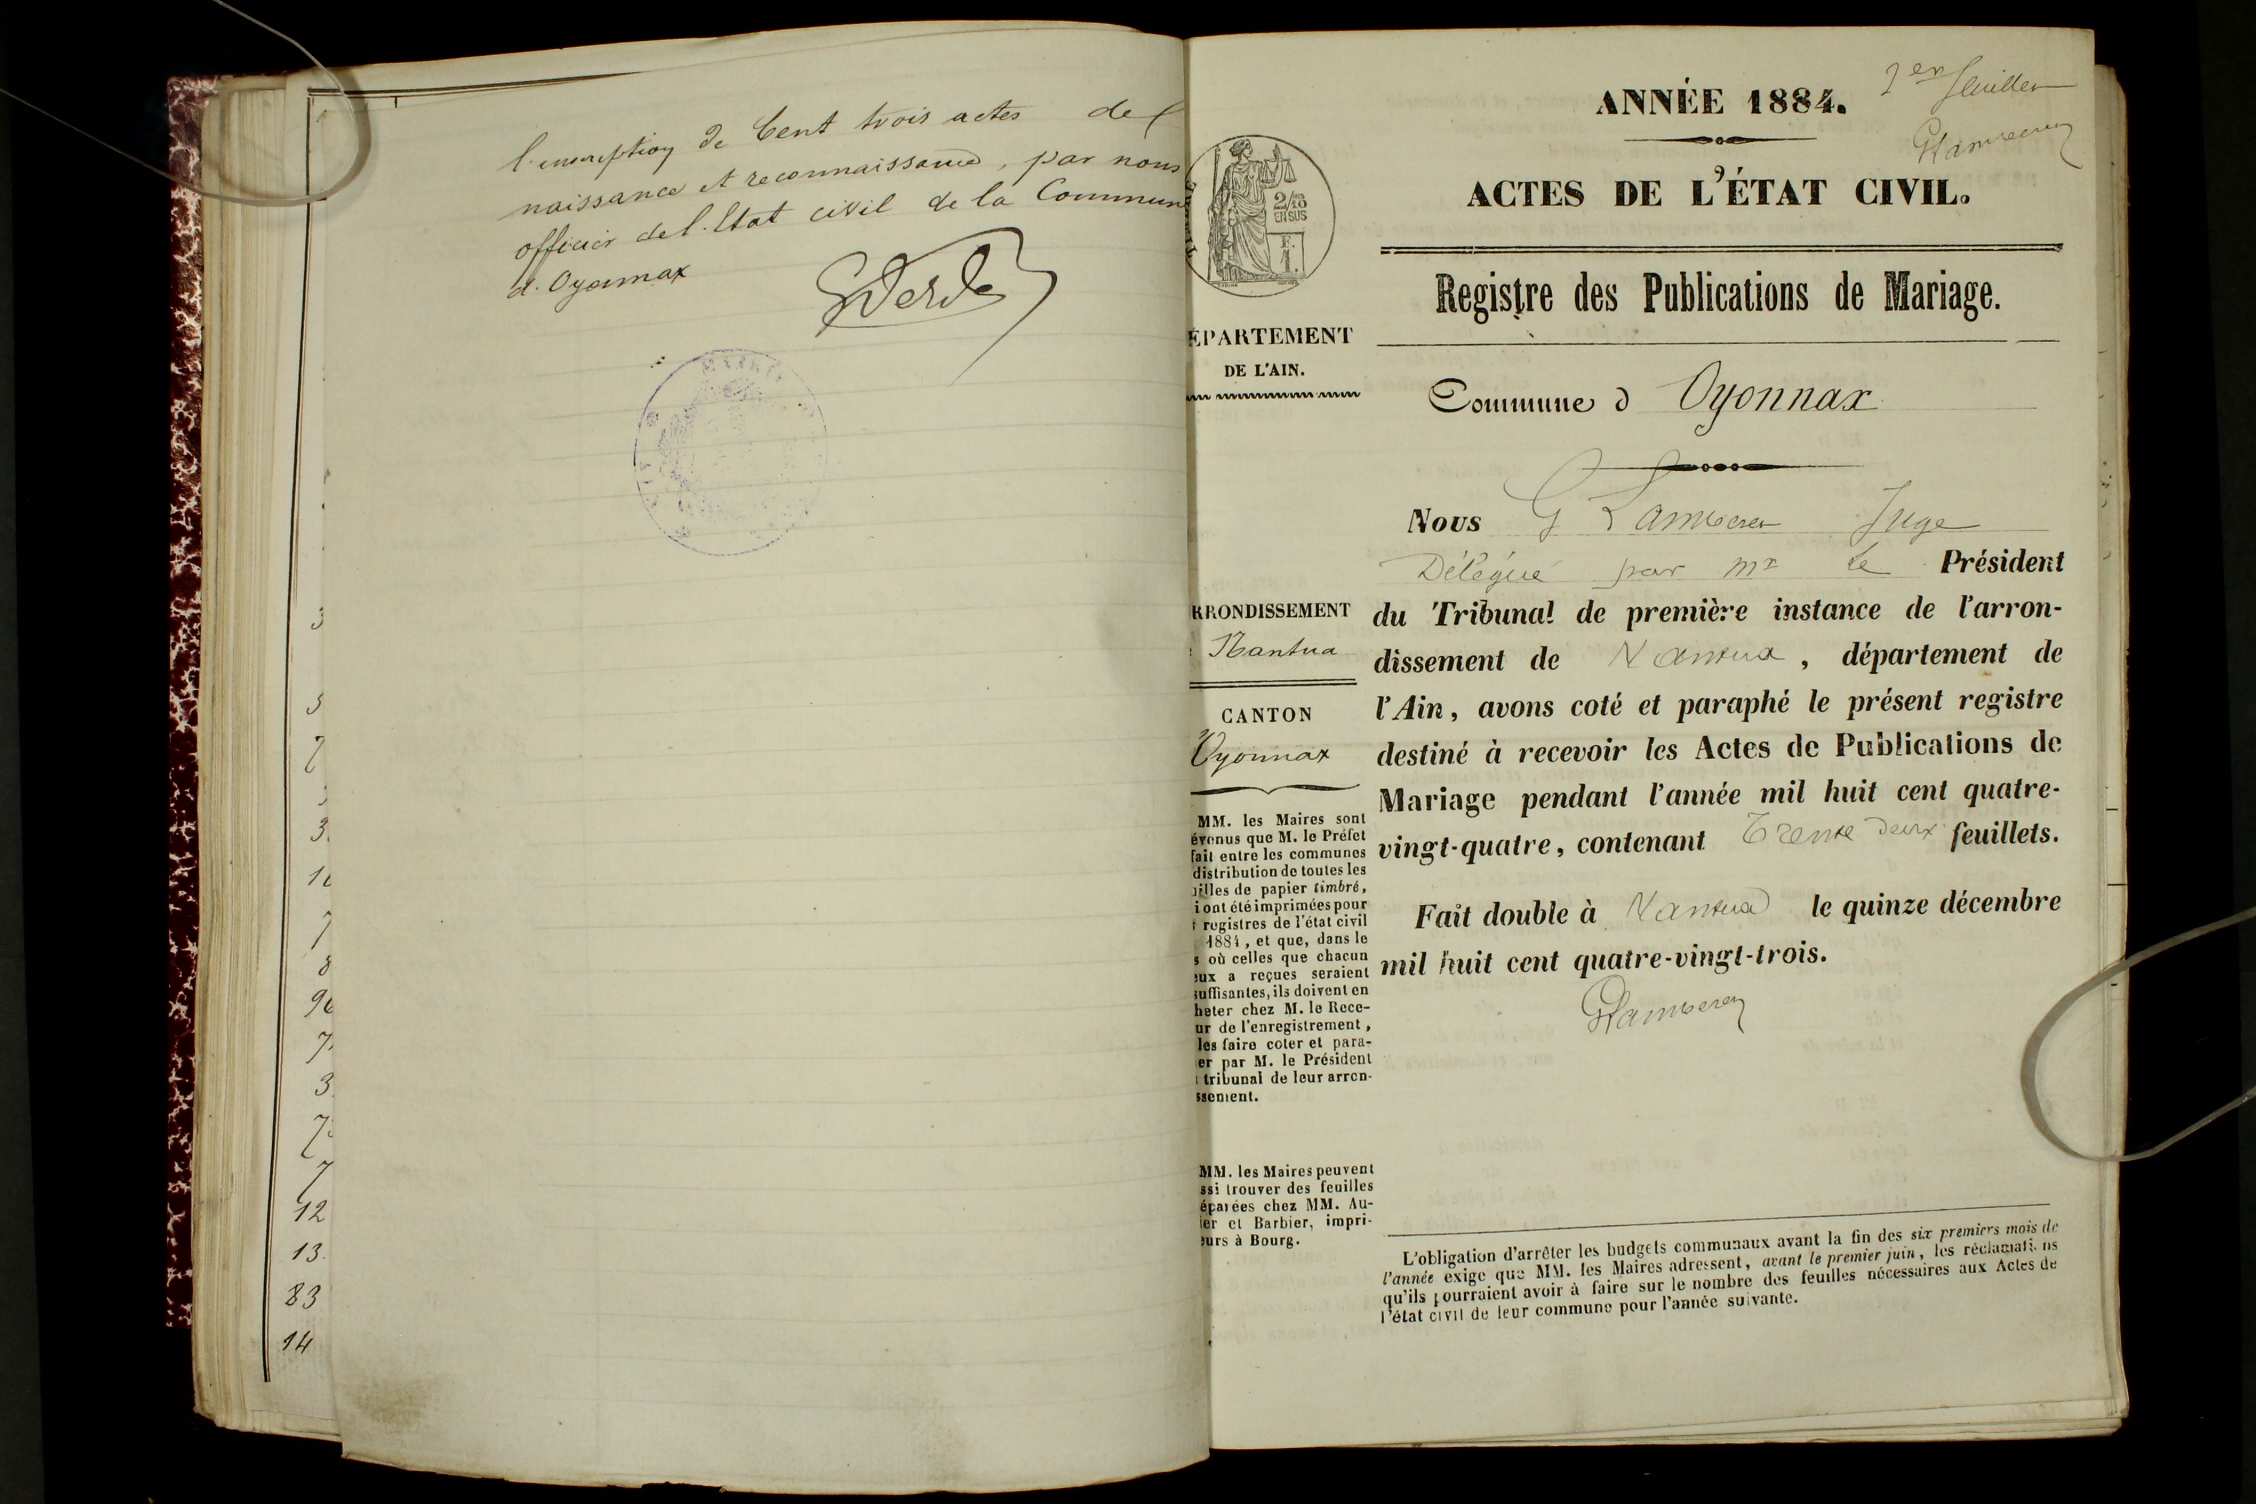 l'inscription de Cent trois actes de
naissance et reconnaissance, par nous
officier de l'Etat civil de la Commun
d'Oyonnax
MAIRIE
3
5
7
3
10
7
8
96
7
3
7
7
12
13
83
14
1er feuillet
ANNÉE 1884.
ACTES DE L'ÉTAT CIVIL.
2/10
EN SUS
F.
1.
Registre des Publications de Mariage.
ÉPARTEMENT
DE L'AIN.
RRONDISSEMENT
Nantua
CANTON
Oyonnax
MM. les Maires sont
évenus que M. le Préfet
fait entre les communes
distribution de toutes les
uilles de papier timbré,
i ont été imprimées pour
s registres de l'état civil
1884, et que, dans le
s où celles que chacun
eux a reçues seraient
suffisantes, ils doivent en
heter chez M. le Rece-
ur de l'enregistrement,
les faire coter et para-
er par M. le Président
tribunal de leur arron-
ssement.
MM. les Maires peuvent
ssi trouver des feuilles
éparées chez MM. Au-
ier et Barbier, impri-
eurs à Bourg.
Commune d Oyonnax
Nous G Lamberet Juge
Délégué par Mr le Président
du Tribunal de première instance de l'arron-
dissement de Nantua, département de
l'Ain, avons coté et paraphé le présent registre
destiné à recevoir les Actes de Publications de
Mariage pendant l'année mil huit cent quatre-
vingt-quatre, contenant Trente deux feuillets.
Fait double à Nantua le quinze décembre
mil huit cent quatre-vingt-trois.
L'obligation d'arrêter les budgets communaux avant la fin des six premiers mois de
l'année exige que MM. les Maires adressent, avant le premier juin, les réclamations
qu'ils pourraient avoir à faire sur le nombre des feuilles nécessaires aux Actes de
l'état civil de leur commune pour l'année suivante.